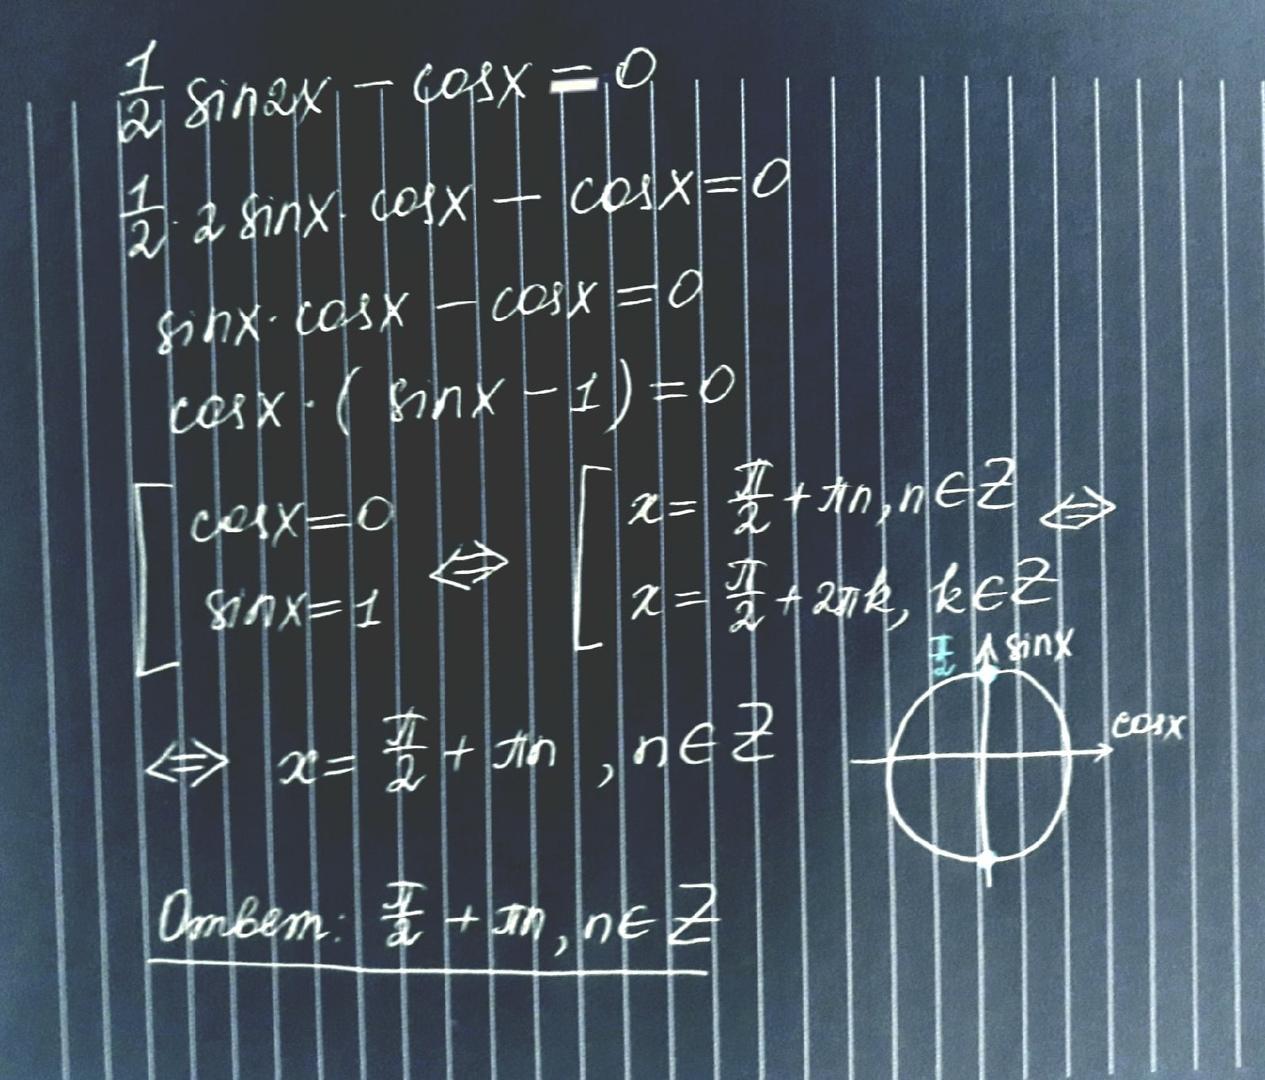 1/2 sin2x − cosx = 0
1/2 · 2 sinx · cosx − cosx = 0
sinx · cosx − cosx = 0
cosx · ( sinx − 1 ) = 0
[ cosx = 0 ⇔ [ x = π/2 + πn, n ∈ Z ⇔
sinx = 1 x = π/2 + 2πk, k ∈ Z
π/2 sinx
cosx
⇔ x = π/2 + πn , n ∈ Z
Ответ: π/2 + πn, n ∈ Z